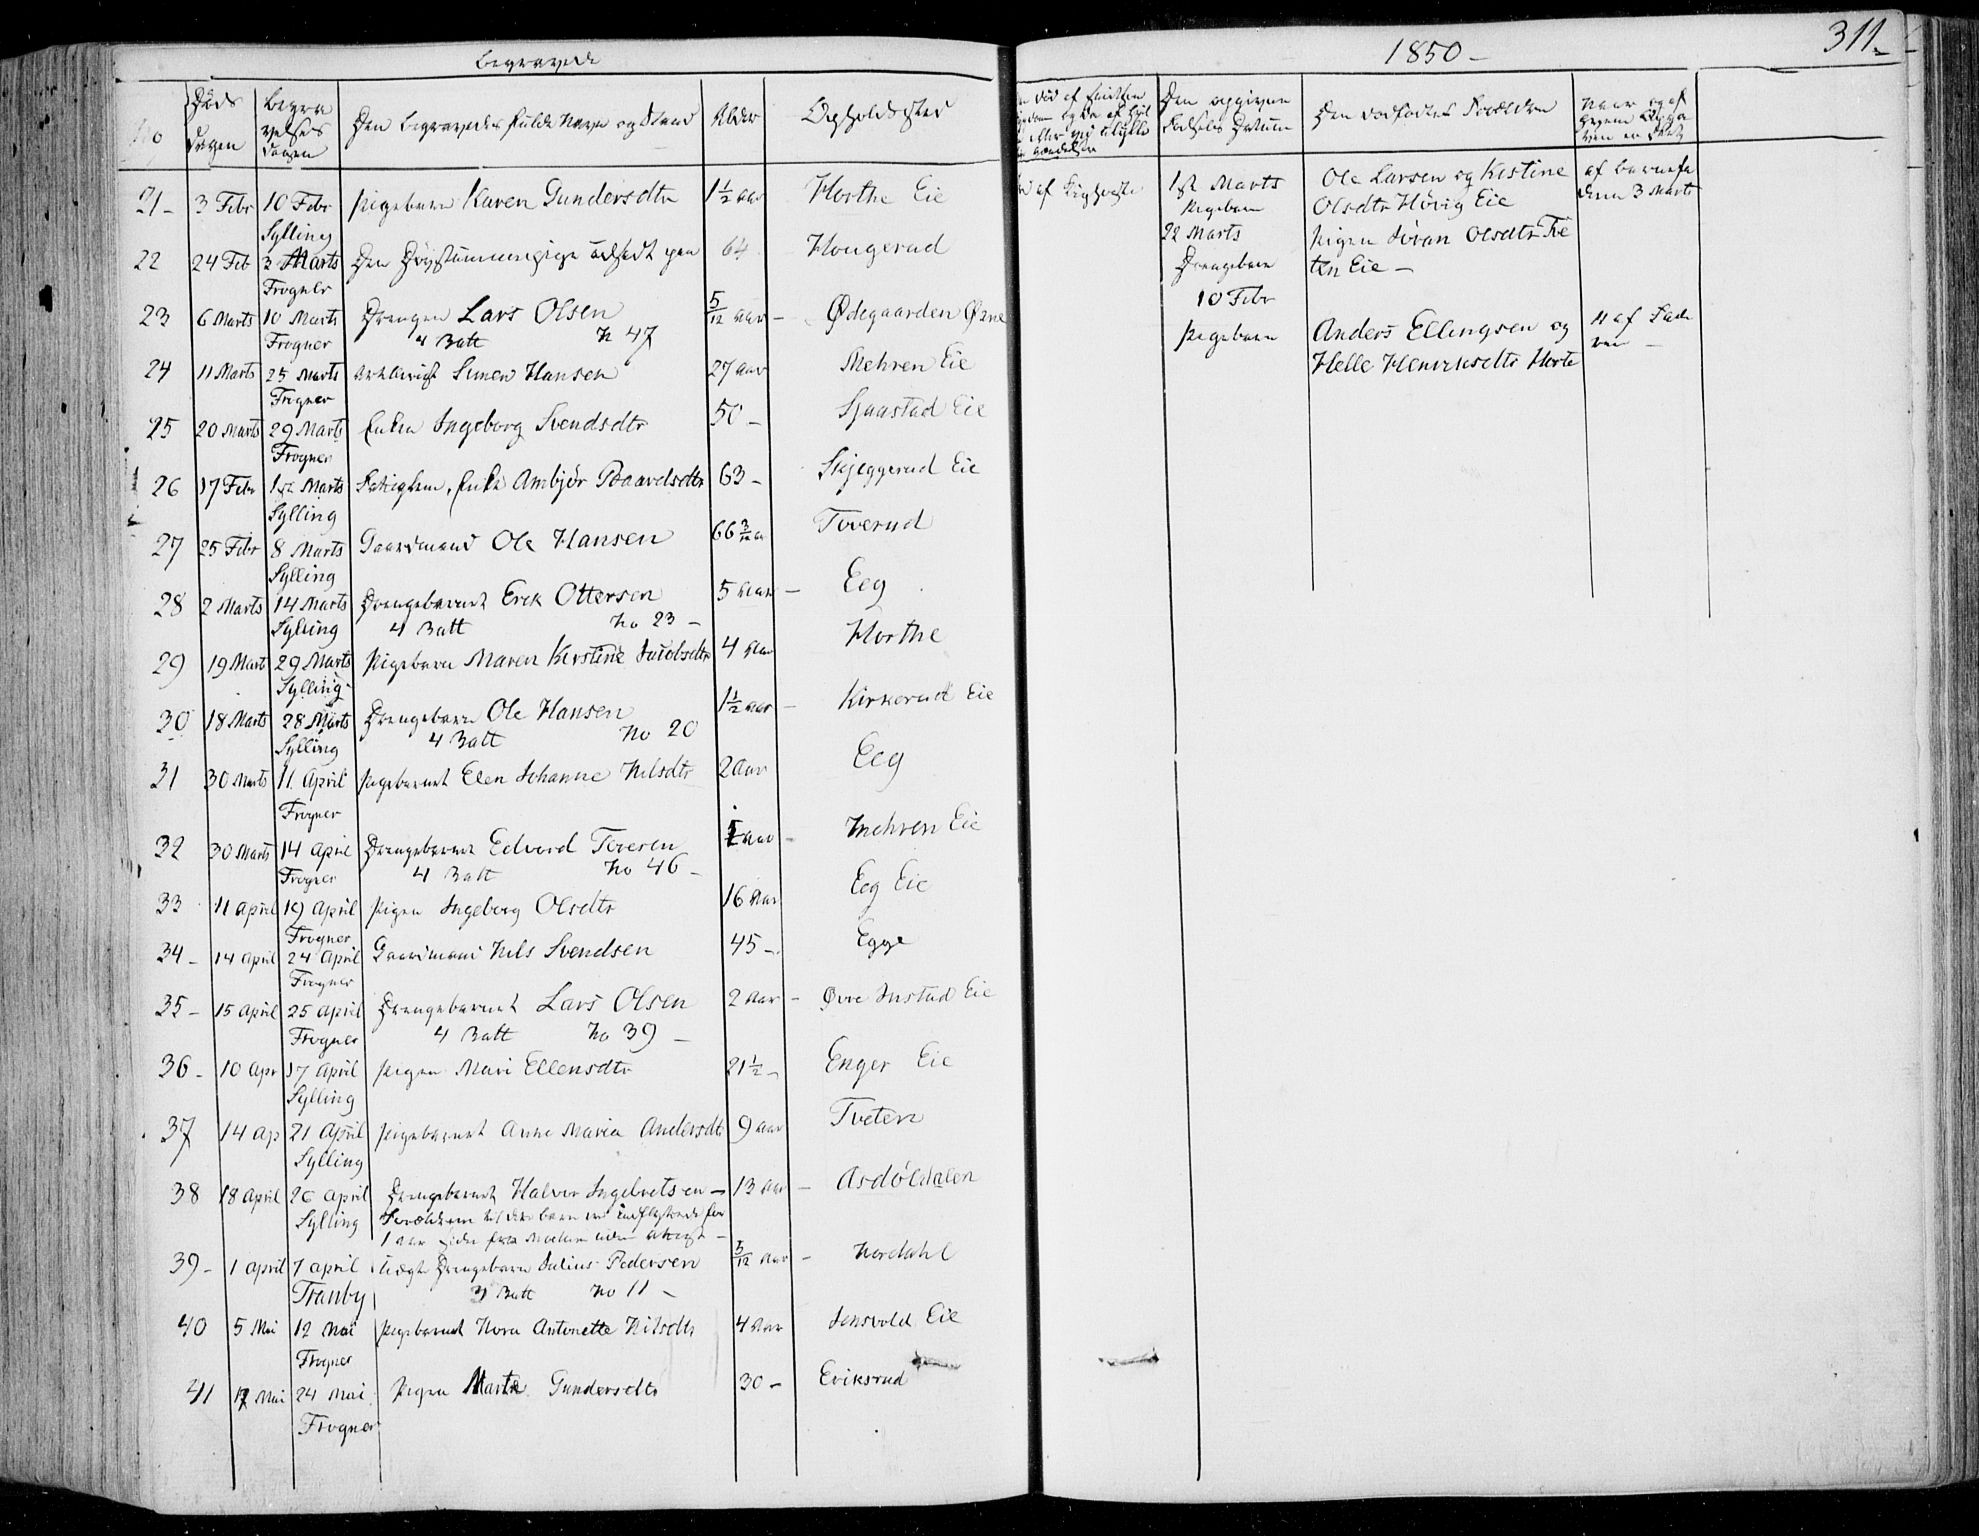 Begravede
1850 -
311 -
No
Døds Dagen
Begravelses Dagen
Den Begravedes fulde Navn og Stand
Alder
Opholdssted
Den opgivne Fødsels Datum
Den dødfødtes Forældre
21 - 3 Febr 10 Febr Pigebarn Karen Gundersdtr 1 1/2 Aar Horthe Eie
Sylling
22 24 Feb 3 Marts Den 64 Hougerud
Frogner
23 6 Marts 10 Marts Drengen Lars Olsen 5/12 Aar - Ødegaarden Øvre
Frogner 4 Batt N 47
24 11 Marts 25 Marts Simen Hansen 27 Aar Mehren Eie
Frogner
25 20 Marts 29 Marts Enken Ingeborg Svendsdtr 50 - Sjaastad Eie
Frogner
26 17 Febr 1ste Marts Enke Ambjør Paavelsdtr 63 - Skjeggerud Eie
Sylling
27 25 Febr 8 Marts Gaardmand Ole Hansen 66 3/12 Toverud
Sylling
28 2 Marts 14 Marts Drengebarnet Erik Ottersen 5 Aar - Eeg
Sylling 4 Batt No 23 -
29 19 Mart 29 Marts Pigebarn Maren Kirstine Jacobsdtr 4 Aar Horthe
Sylling
30 18 Marts 28 Marts Drengebarn Ole Hansen 1 1/2 Aar - Kirkerud Eie
Sylling 4 Batt No 20
31 30 Marts 11 April Pigebarnet Elen Johanne Nilsdtr 2 Aar Eeg
Frogner
32 30 Marts 14 April Drengebarnet Edvard Iversen Aar - Mehren Eie
Frogner 4 Batt No 46 -
33 11 April 19 April Pigen Ingeborg Olsdtr 16 Aar Eeg Eie
Frogner
34 - 14 April 24 April Gaardmand Nils Svendsen 45 - Egge
Frogner
35 - 15 April 25 April Drengebarnet Lars Olsen 2 Aar - Øvre Justad Eie
Frogner 4 Batt No 39 -
36 - 10 Apr 17 April Pigen Mari Ellensdtr 21 1/2 - Enger Eie
Sylling
37 14 Ap 21 April Pigebarnet Anne Maria Andersdtr 9 Aar Tveten
Sylling
38 18 April 26 April Drengebarnet Halvor Ingebretsen - 13 Aar - Asdøldalen
Sylling Forældrene til dette barn ere indflyttede for
1 Aar siden fra Modum uden Attest -
39 - 1 April 7 April Uægte Drengebarn Julius Pedersen 5/12 Aar - Nordahl
Tranby 3 Batt No 11 -
40 5 Mai 12 Mai Pigebarnet Hora Antonette Nilsdtr 4 Aar Jensvold Eie
Frogner
41 17 Mai 24 Mai Pigen Marte Gundersdtr 30 - Eriksrud
Frogner
1ste Marts Ole Larsen og Kistine af Barnefa
Pigebarn Olsdtr Høvig Eie deren 3 Marts
22 Marts Pigen Jøran Olsdtr Tve
Drengebarn ten Eie -
10 Febr
Pigebarn Anders Ellingsen og 11 af Fade
Helle Henriksdtr Horte ren -